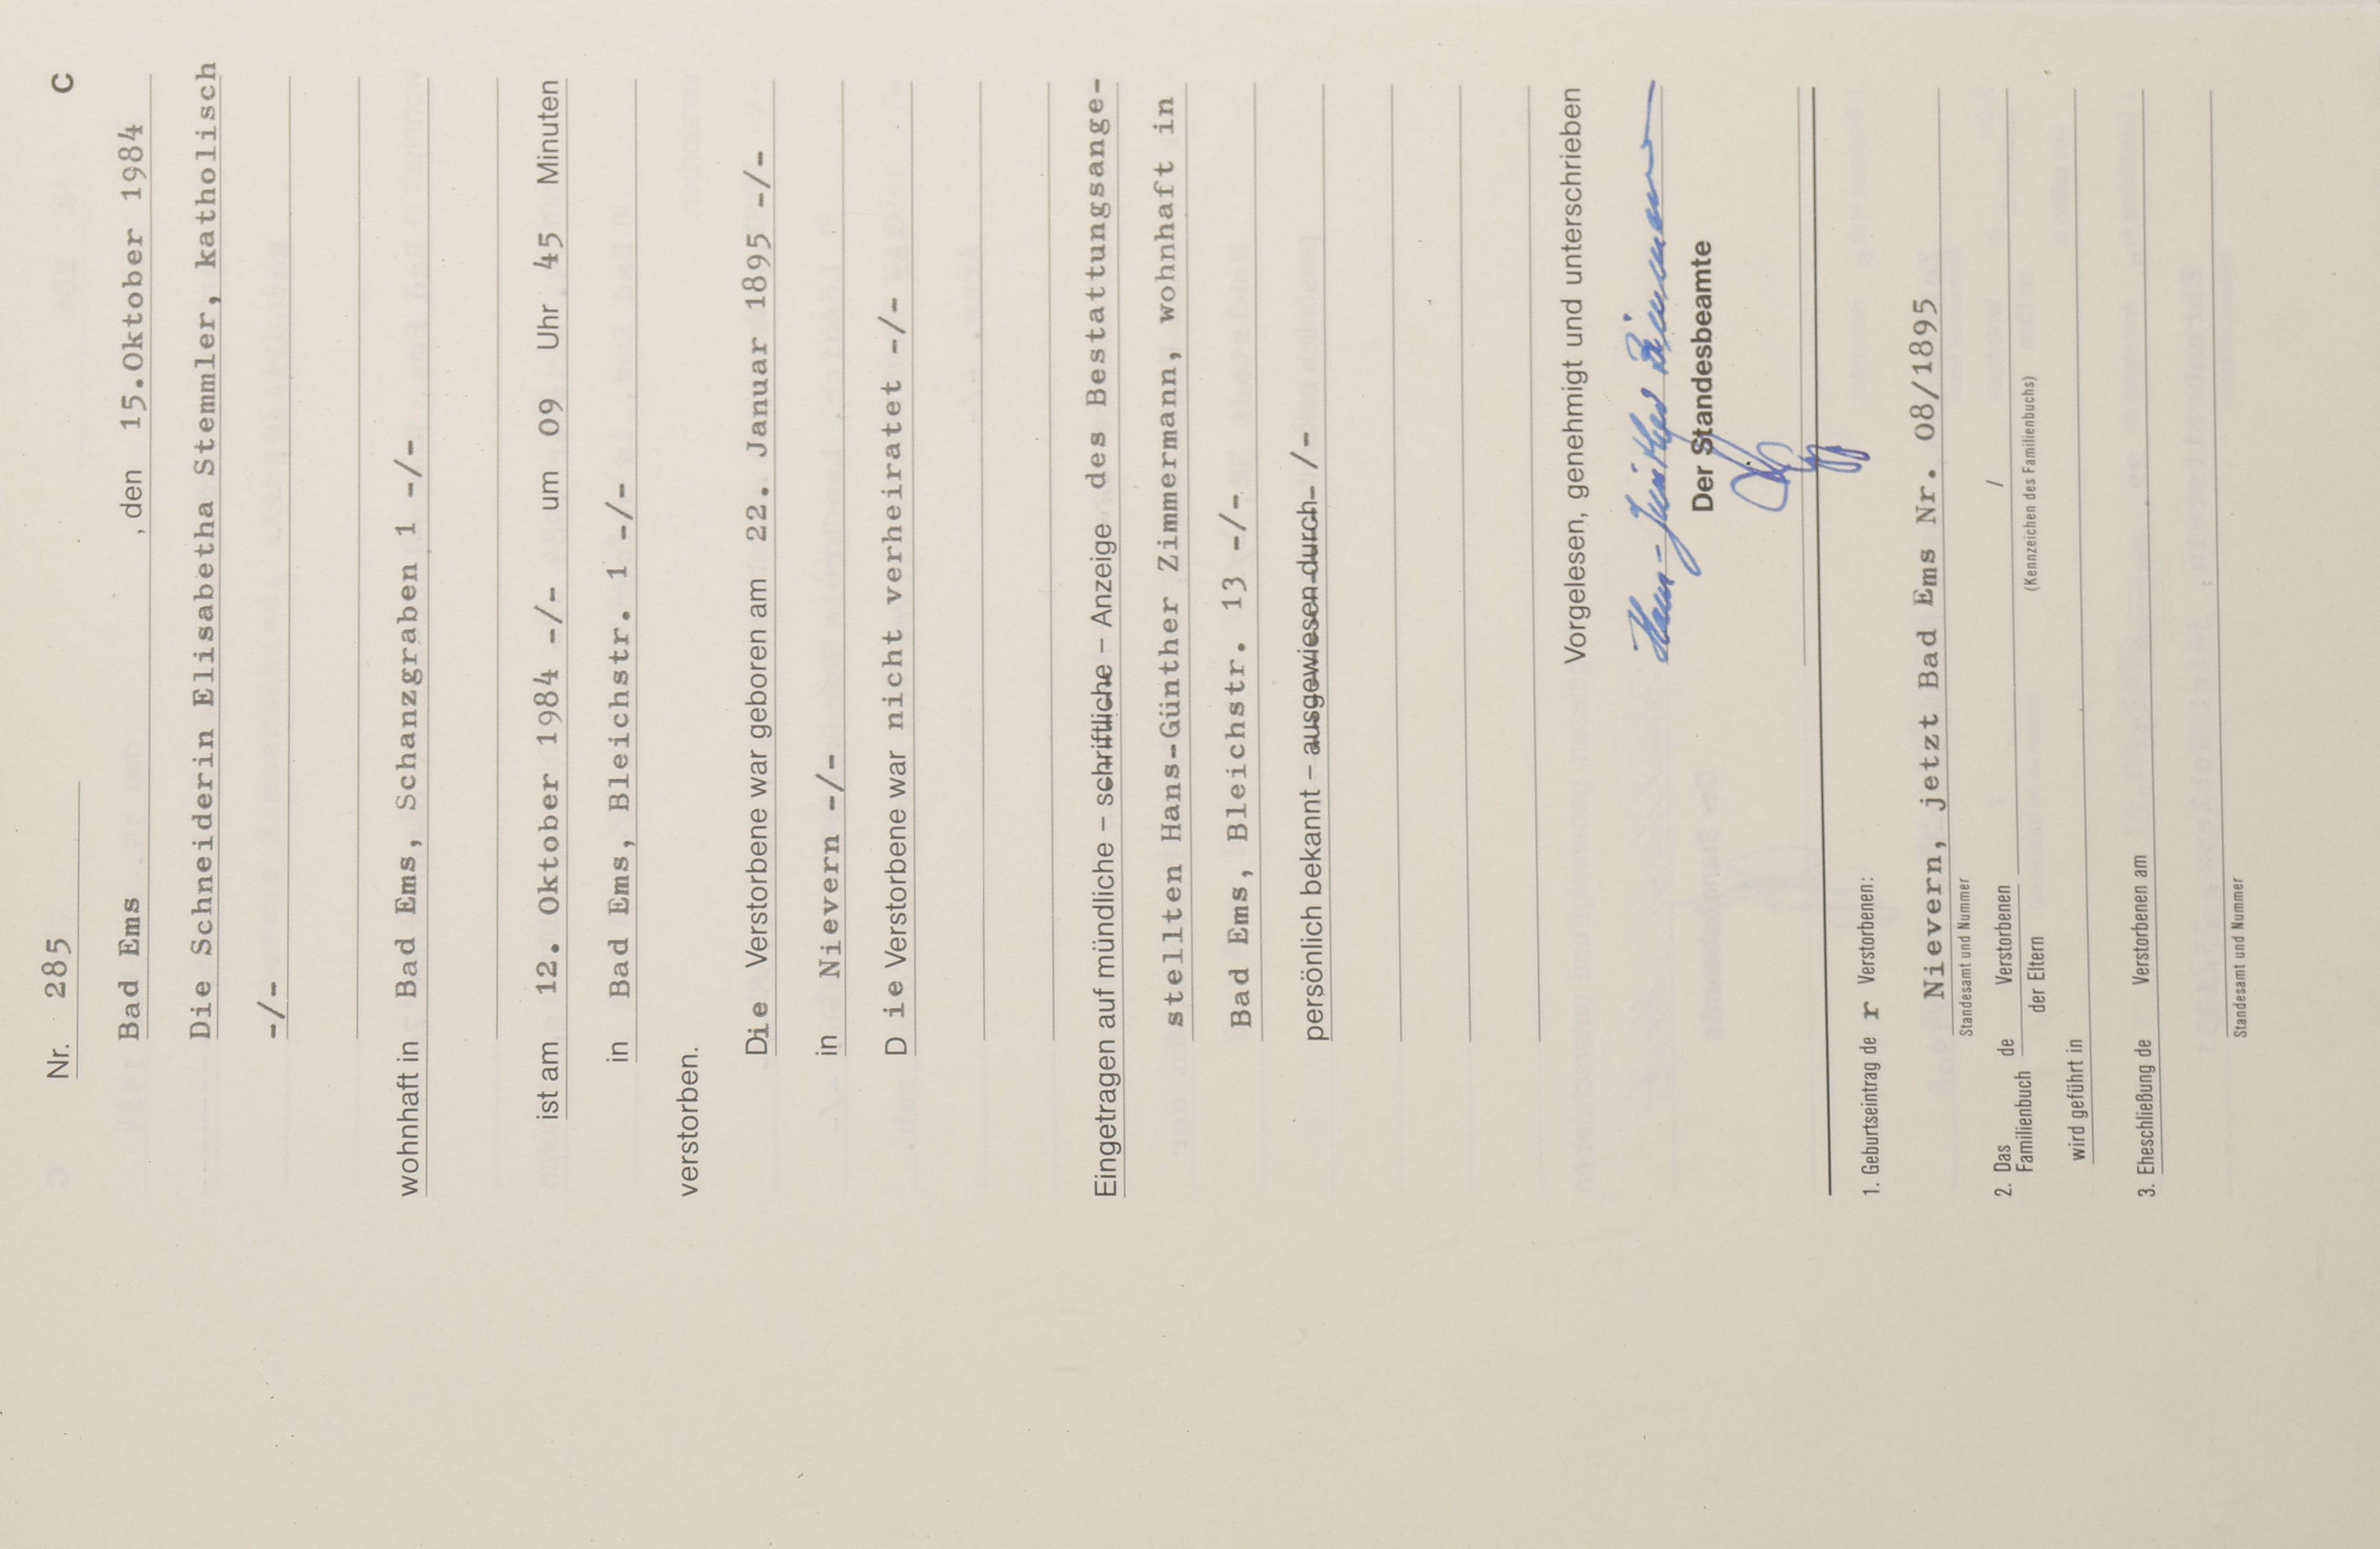 Nr. 285 C
Bad Ems , den 15.Oktober 1984
Die Schneiderin Elisabetha Stemmler, katholisch
-/-
wohnhaft in Bad Ems, Schanzgraben 1 -/-
ist am 12. Oktober 1984 -/- um 09 Uhr 45 Minuten
in Bad Ems, Bleichstr. 1 -/-
verstorben.
Die Verstorbene war geboren am 22. Januar 1895 -/-
in Nievern -/-
D ie Verstorbene war nicht verheiratet -/-
Eingetragen auf mündliche – schriftliche – Anzeige des Bestattungsange-
stellten Hans-Günther Zimmermann, wohnhaft in
Bad Ems, Bleichstr. 13 -/-
persönlich bekannt – ausgewiesen durch- /-
Vorgelesen, genehmigt und unterschrieben
Hans-Günther Zimmermann
Der Standesbeamte
1. Geburtseintrag de r Verstorbenen:
Nievern, jetzt Bad Ems Nr. 08/1895
Standesamt und Nummer
2. Das Familienbuch de Verstorbenen /
der Eltern (Kennzeichen des Familienbuchs)
wird geführt in
3. Eheschließung de Verstorbenen am
Standesamt und Nummer